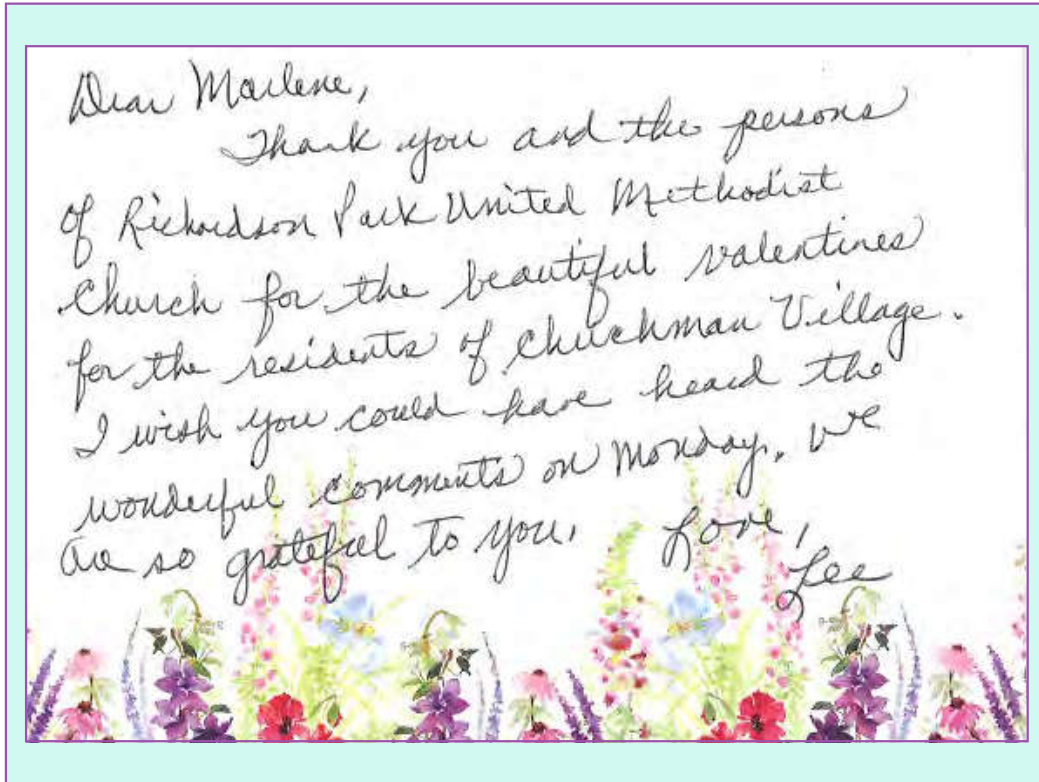 Dear Marlene,
Thank you and the persons
of Richardson Park United Methodist
Church for the beautiful valentines
for the residents of Churchman Village.
I wish you could have heard the
wonderful comments on Monday. We
are so grateful to you. Love,
Lee